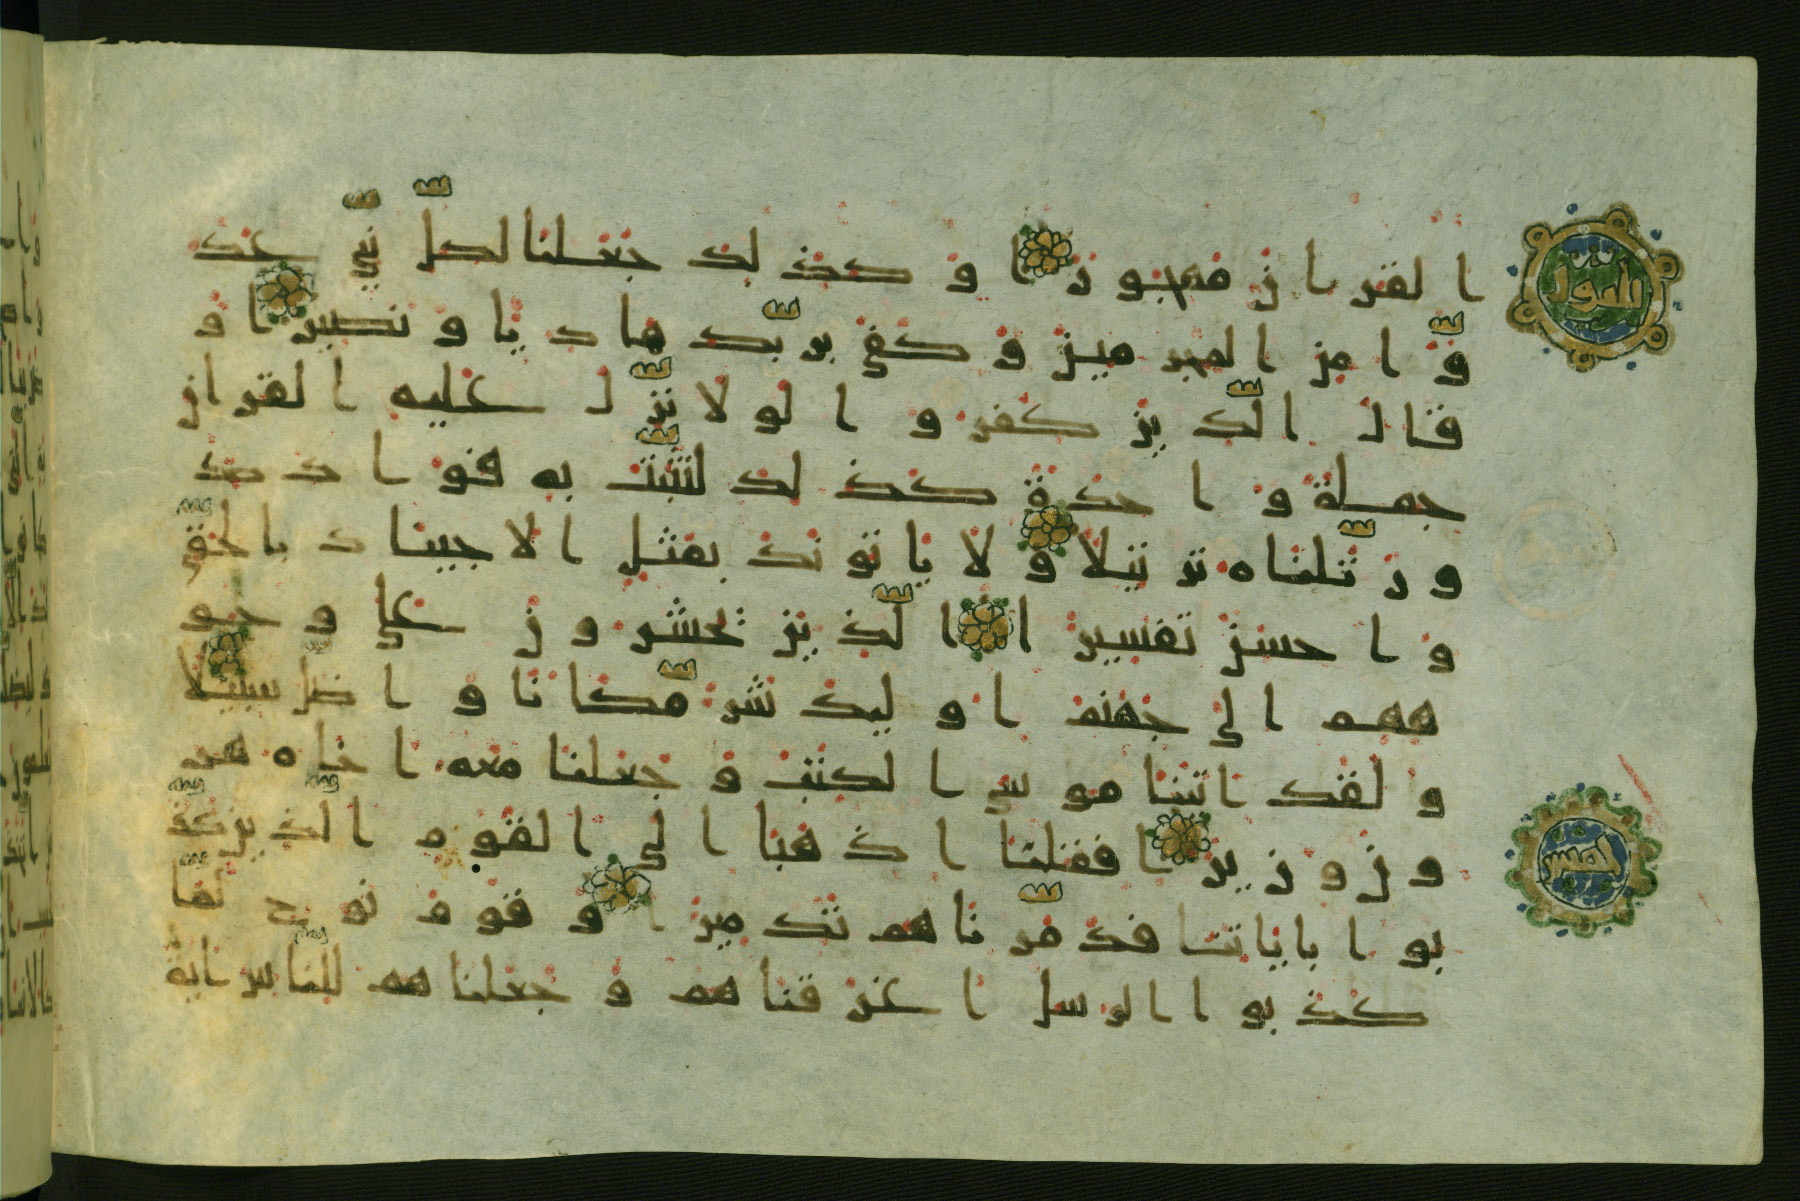 القرءان مهجورا وكذلك جعلنا لكلّ نبيّ عد
وّا من المجرمين وكفى بربّك هاديا ونصيرا و
قال الّذين كفروا لولا نزّل عليه القران
جملة واحدة كذلك لنثبّت به فوادك
ورتّلناه ترتيلا ولا ياتونك بمثل الا جيناك بالحقّ
واحسن تفسيرا الّذين يحشرون على وجو
ههم الى جهنم اوليك شرّ مّكانا واضل سبيلا
ولقد اتينا موسى الكتب وجعلنا معه اخاه هر
ون وزيرا فقلنا اذهبا الى القوم الذين كذّ
بوا باياتنا فدمّرناهم تدميرا وقوم نوح لمّا
كذبوا الرسل اغرقناهم وجعلناهم للنّاس اية